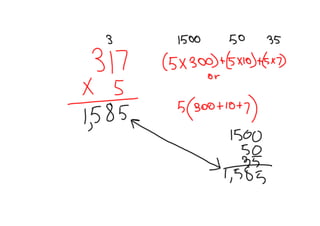 3
317
x 5
1,585
1500 50 35
(5x300)+(5x10)+(5x7)
or
5(300+10+7)
1500
50
35
1,585